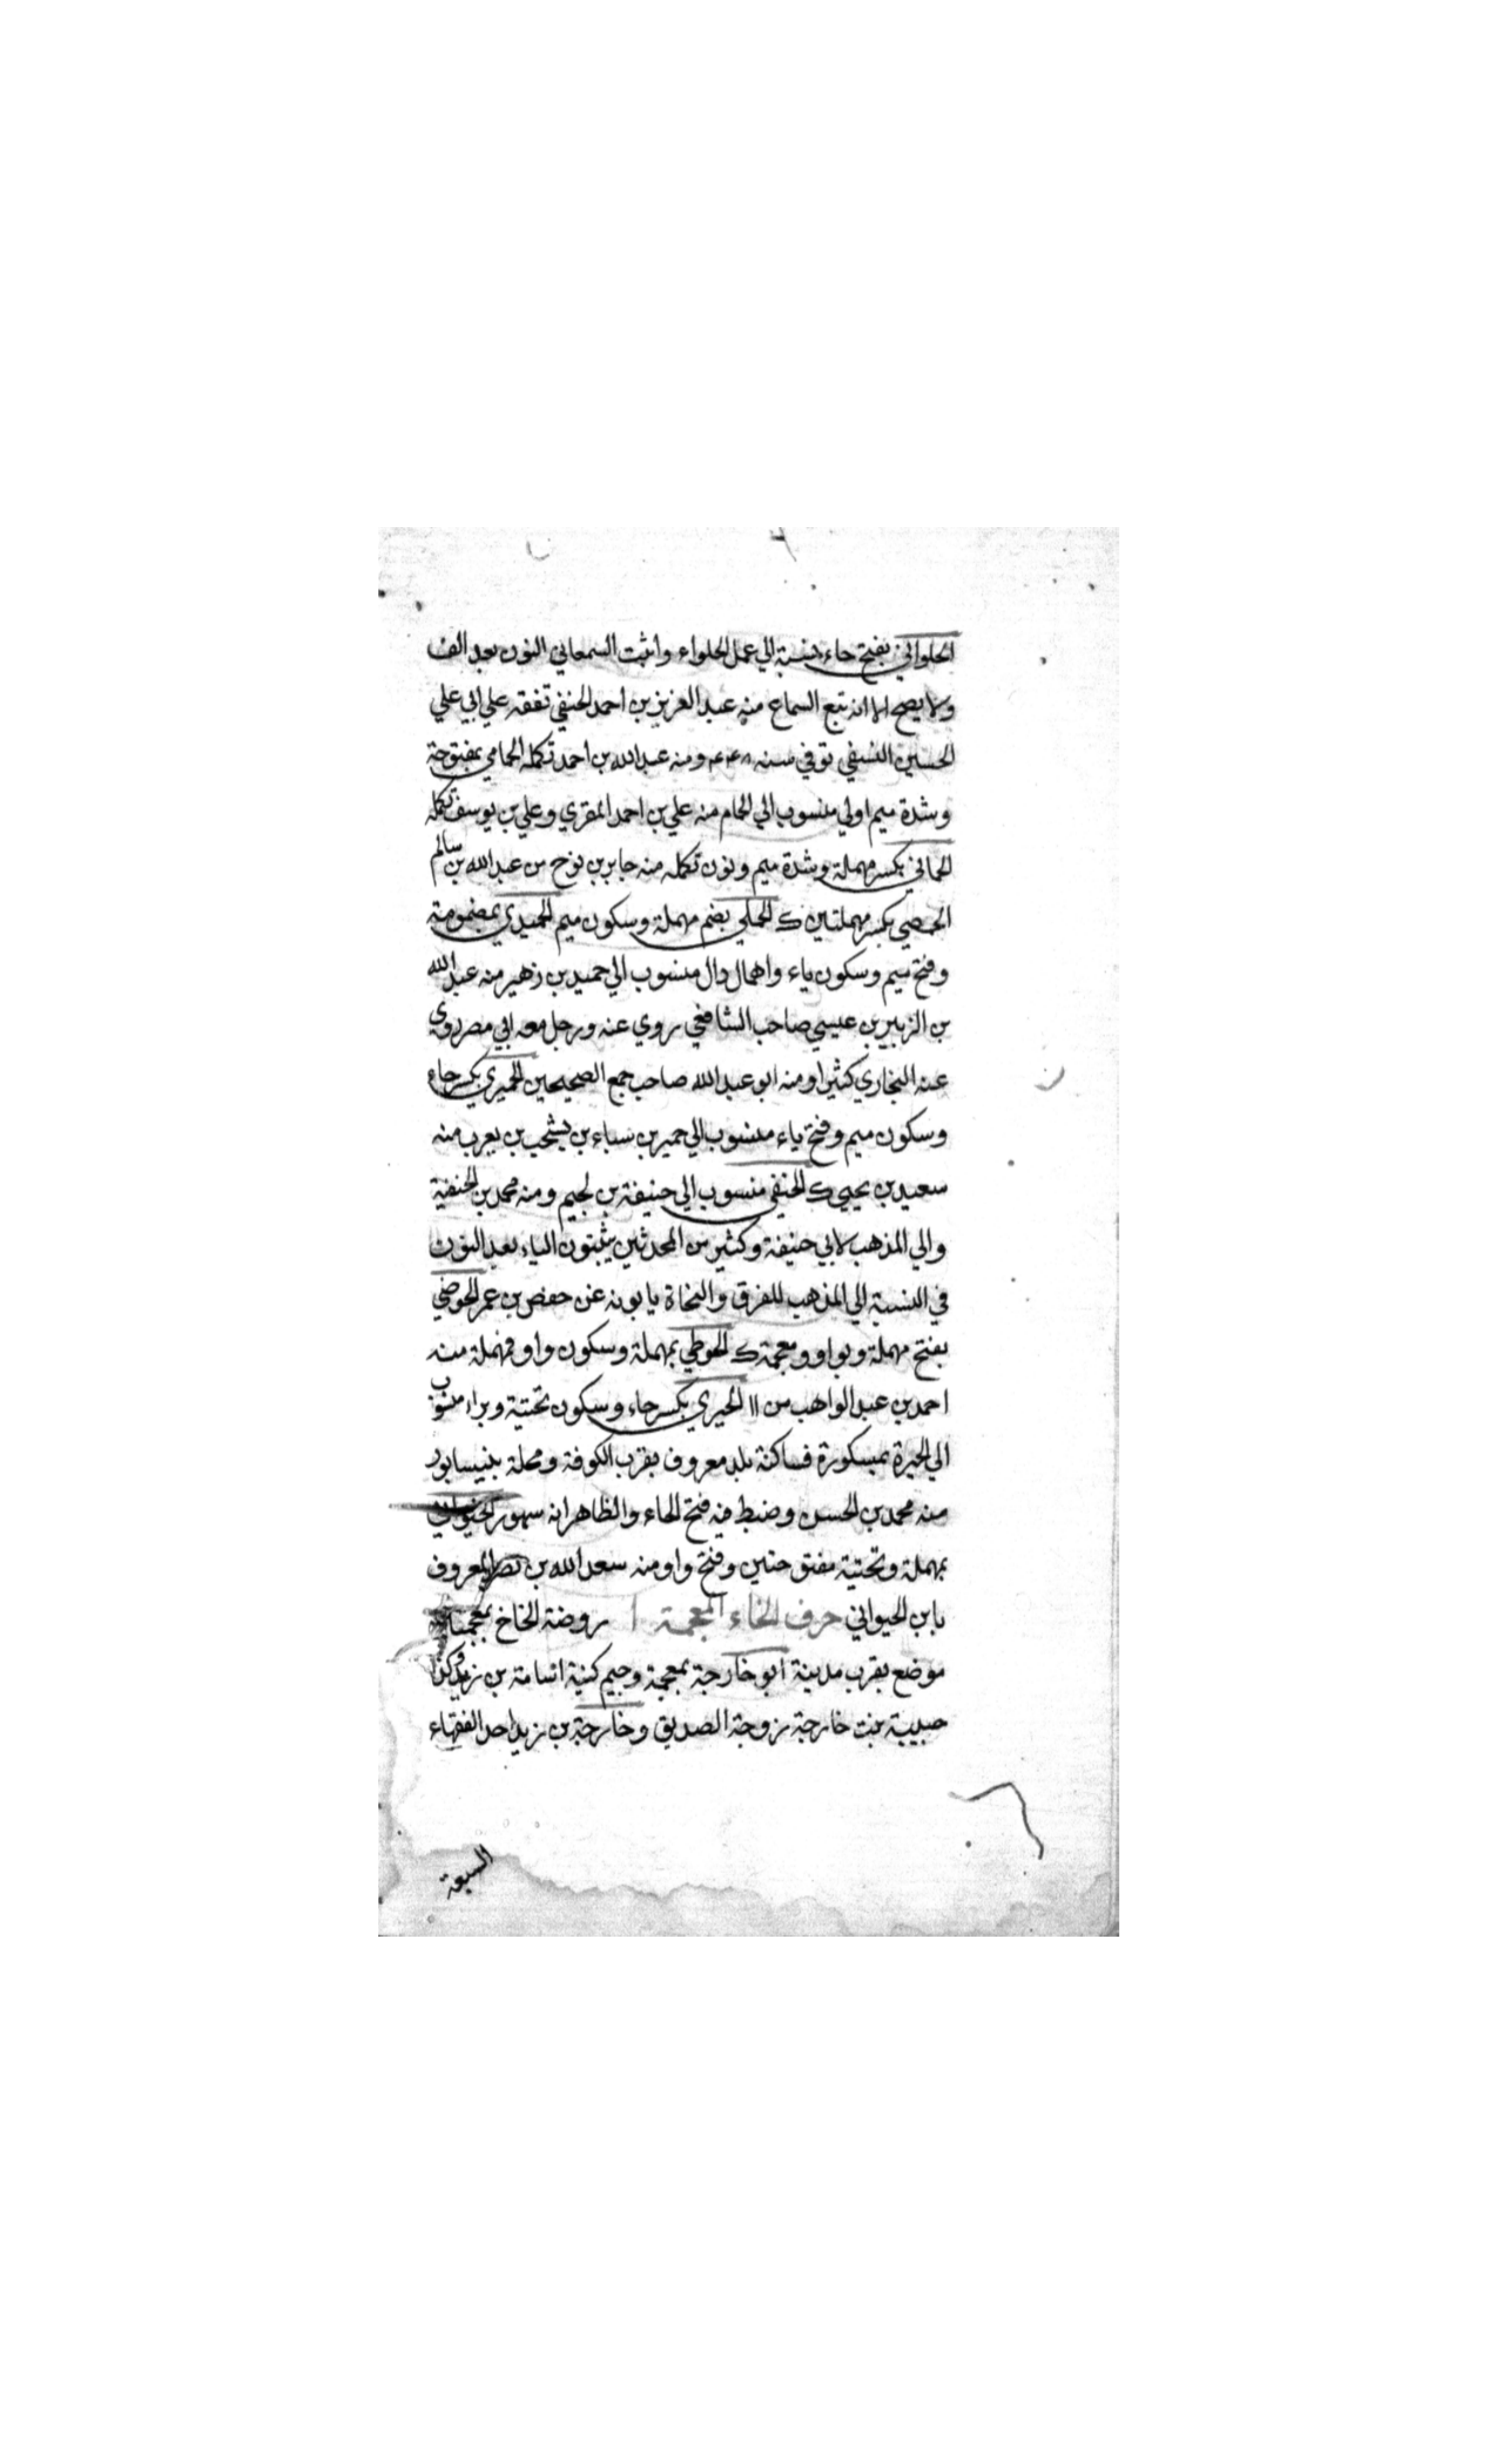 الحلواني بفتح حاء نسبة الي عمل الحلواء واثبت السمعاني النون بعد الف
ولا يصح الا انه تبع السماع منه عبد العزيز بن احمد الحنفي تفقه علي ابي علي
الحسين النسفي توفي سنه ٤٤٨ ومنه عبد الله بن احمد تكمله الحمامي بمفتوحة
وشدة ميم اولي منسوب الي الحمام منه علي بن احمد المقري وعلي بن يوسف تكمله
الحماني بكسر مهملة وشدة ميم ونون تكمله منه جابر بن نوح من عبد الله بن سالم
الحمصي بكسر مهملتين ك الحملي بضم مهملة وسكون ميم الحميدي بمضمومة
وفتح ميم وسكون ياء واهمال دال منسوب الي حميد بن زهير منه عبد الله
بن الزبير بن عيسي صاحب الشافعي روي عنه ورحل معه الي مصر روي
عنه البخاري كثيرا ومنه ابو عبد الله صاحب جمع الصحيحين الحميري بكسر حاء
وسكون ميم وفتح ياء منسوب الي حمير بن سباء بن يشجب بن يعرب منه
سعيد بن يحيي ك الحنفي منسوب الي حنيفة بن لجيم ومنه محمد بن الحنفية
والي المذهب لابي حنيفة وكثير من المحدثين يثبتون الياء بعد النون
في النسبة الي المذهب للفرق والنحاة يابونه عن حفص بن عمر الحوضي
بفتح مهملة وبواو ومعجمة ك الحوطي بمهملة وسكون واو فمهملة منه
احمد بن عبد الواهب من ١١ الحيري بكسر حاء وسكون تحتية وبراء منسوب
الي الحيرة بمكسورة فساكنة بلد معروف بقرب الكوفة ومحلة بنيسابور
منه محمد بن الحسن وضبط فيه فتح الحاء والظاهر انه سهو الحيواني
بمهملة وتحتية مفتوحتين وفتح واو منه سعد الله بن نصر المعروف
بابن الحيواني حرف الخاء المعجمة ا روضة الخاخ بمعجمتين
موضع بقرب مدينة ابو خارجة بمعجمة وجيم كنية اسامة بن زيد وكذا
حبيبة بنت خارجة زوجة الصديق وخارجة بن زيد احد الفقهاء
السبعة